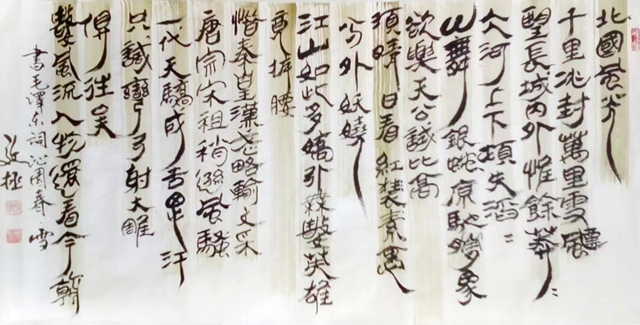 北國風光
千里冰封萬里雪飄
望長城內外惟餘莽々
大河上下頓失滔々
山舞銀蛇原馳蠟象
欲與天公試比高
須晴日看紅裝素裹
分外妖嬈
江山如此多嬌引無數英雄
競折腰
惜秦皇漢武略輸文采
唐宗宋祖稍遜風騷
一代天驕成吉思汗
只識彎弓射大雕
俱往矣
數風流人物還看今朝
書毛澤東詞沁園春雪